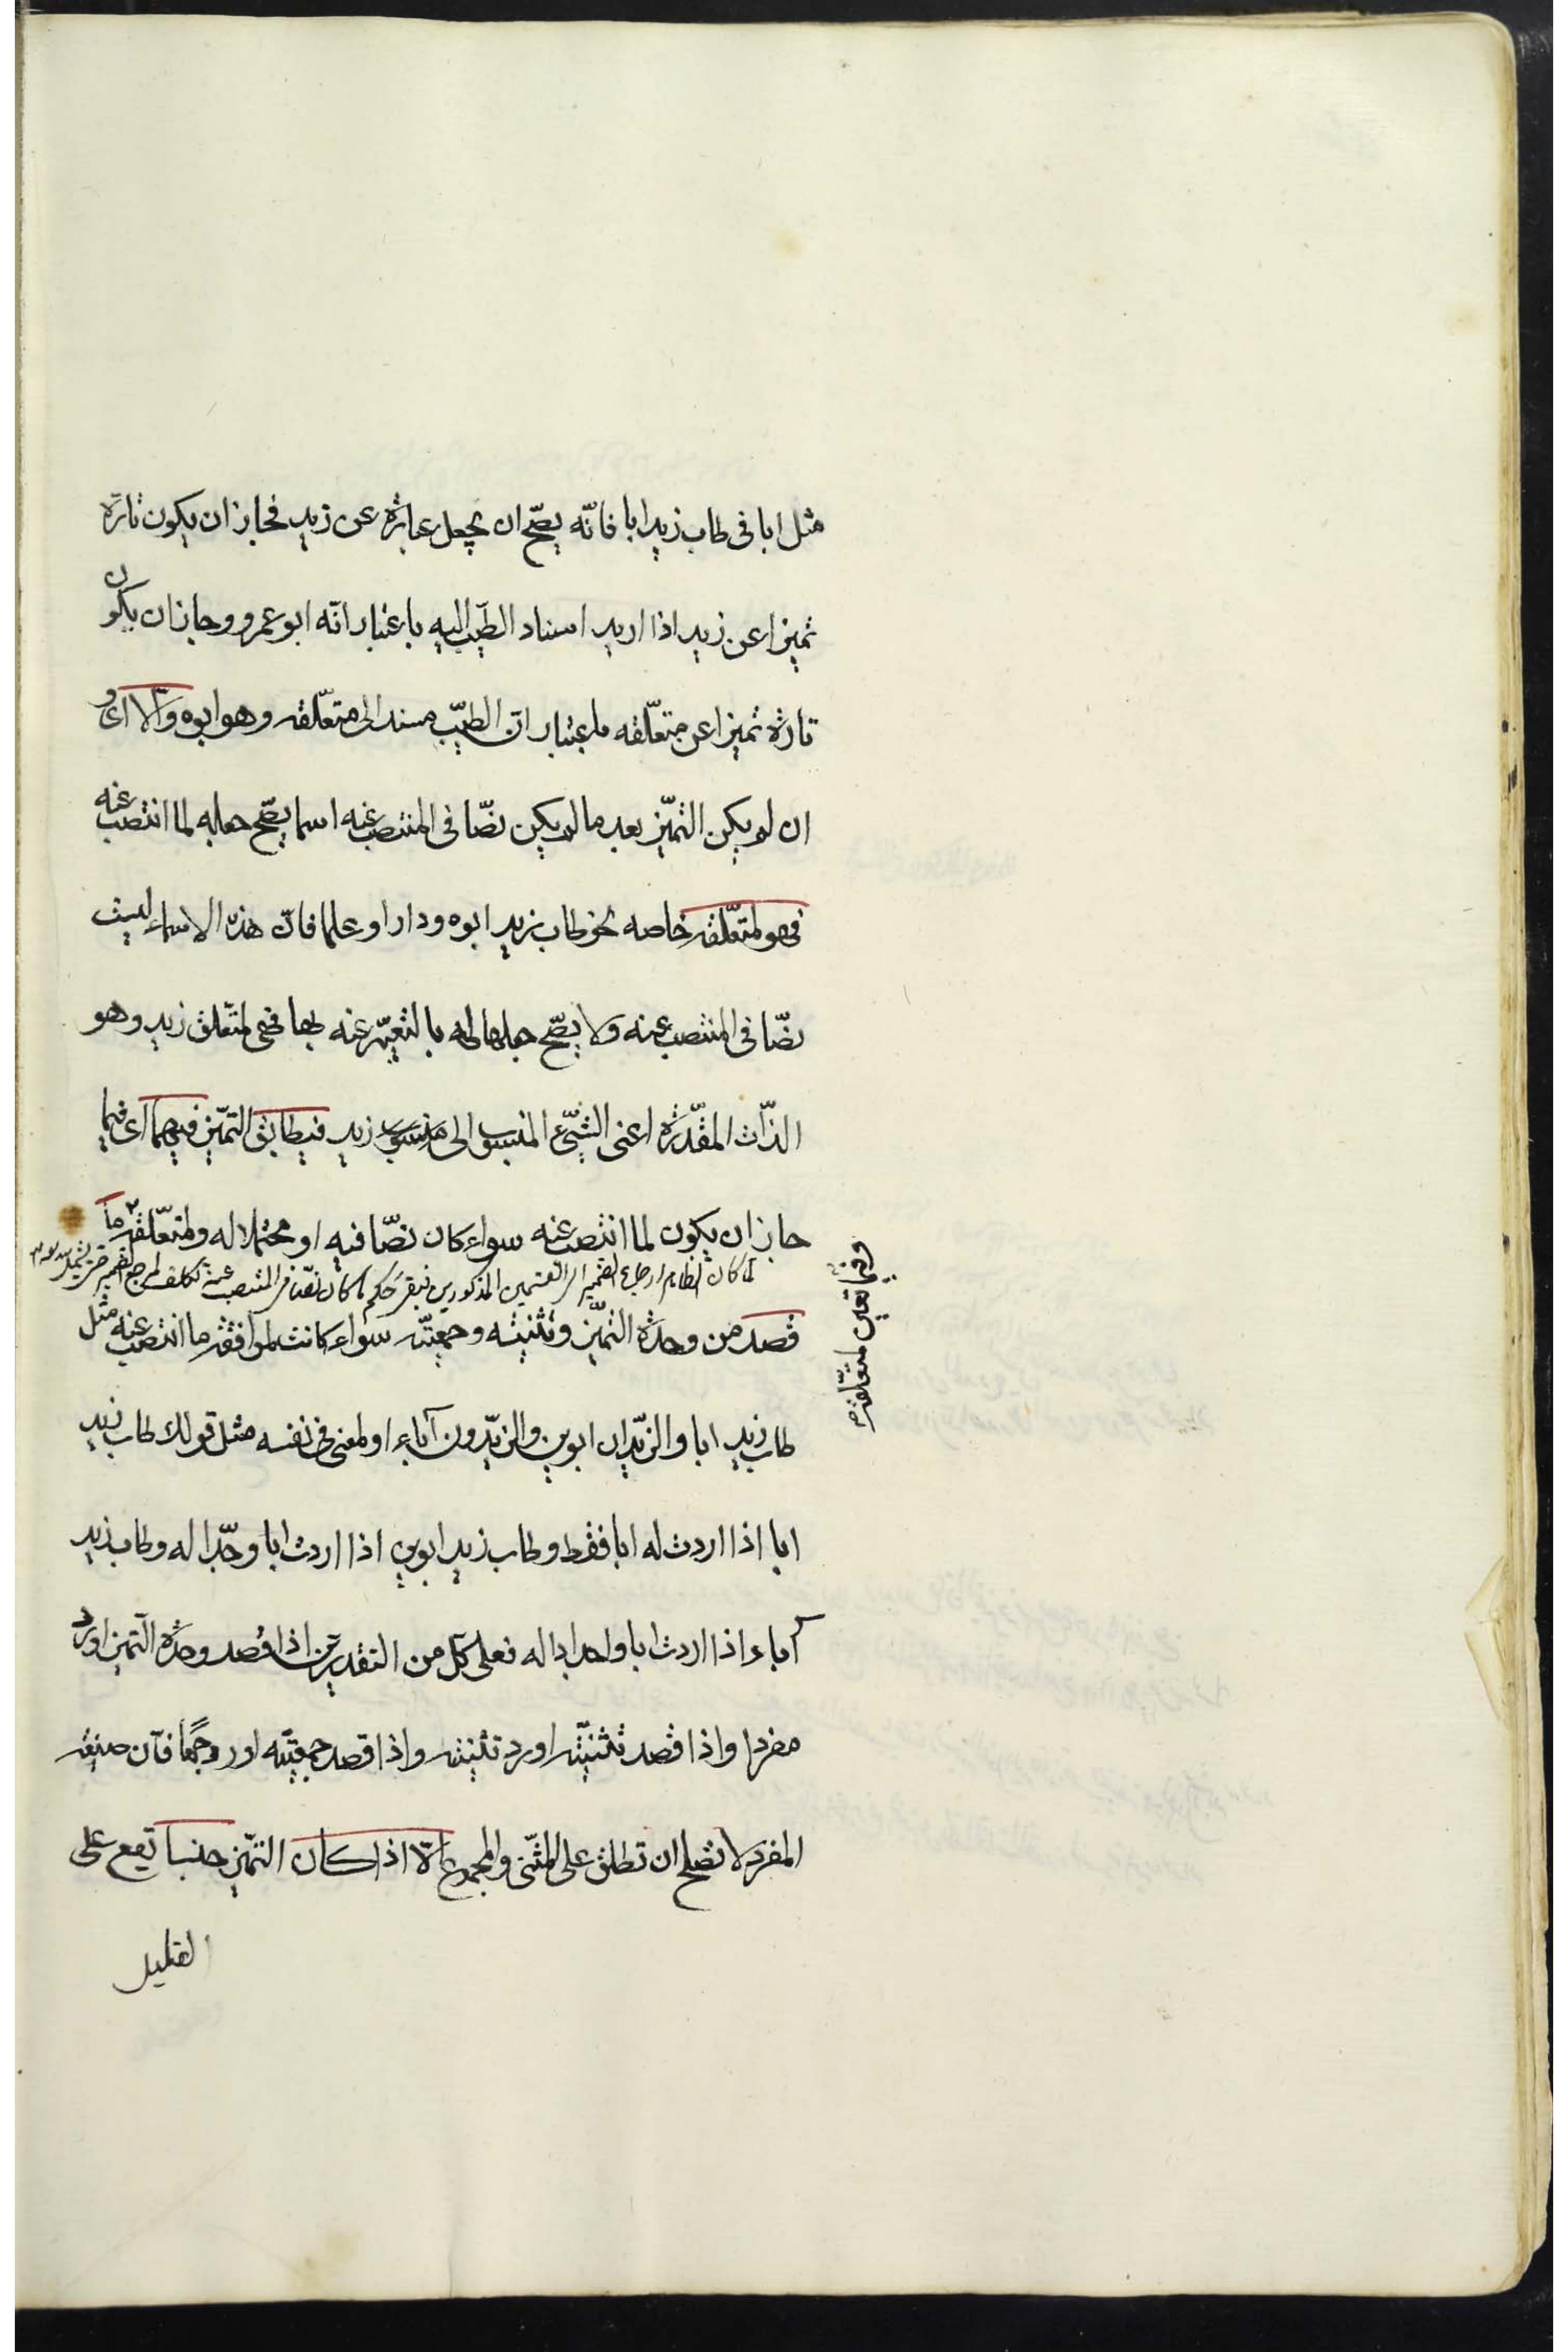 مثل ابا فى طاب زيد ابا فانّه يصّح ان يجعل عبارة عن زيد فجاز ان يكون تارة
تميزا عن زيد اذا اريد اسناد الطّيب اليه باعتبار انّه ابو عمرو وجاز ان يكون
تارة تميزا عن متعلّقه باعتبار انّ الطيّب مسند الى متعلّقه وهو ابوه والّا اى و
ان لم يكن التميّز بعد ما لم يكن نصّا فى المنتصب عنه اسما يصّح جعله لما انتصب عنه
فهو لمتعلّقه خاصه نحو طاب زيد ابوه ودارا وعلما فانّ هذه الاسماء ليست
نصّا فى المنتصب عنه ولا يصّح جعلها له بالتعبّير عنه بها فهى لمتعلق زيد وهو
الذّات المقدّرة اعنى الشّىء المنسوب الى زيد فيطابق التميّز فيهما اى فيما
جاز ان يكون لما انتصب عنه سواء كان نصّا فيه او محتملا له ولمتعلّقه ما
لما كان الظاهر ارجاع الضمير الى القسمين المذكورين فبقى حكم ما كان نصّا فى المنتصب عنه
وفيما تعين لمتعلّقه
قصد من وحدة التميّز وتثنيته وجمعيّته سواء كانت لموافقه ما انتصب عنه مثل
طاب زيد ابا والزّيدان ابوين والزيّدون آباء او لمعنى فى نفسه مثل قولك طاب زيد
ابا اذا اردت له ابا فقط وطاب زيد ابوين اذا اردت ابا وجّدا له وطاب زيد
آباء اذا اردت ابا واجدادا له فعلى كلّ من التقديرين اذا قصد وحدة التميز اورد
مفردا واذا قصد تثنيّته اورد تثنيته واذا قصد جمعيّته اورد جمعًا فانّ صيغه
المفرد لا تصلح ان تطلق على المثّنى والمجموع الّا اذا كان التمّيز جنسا تقع على
القليل